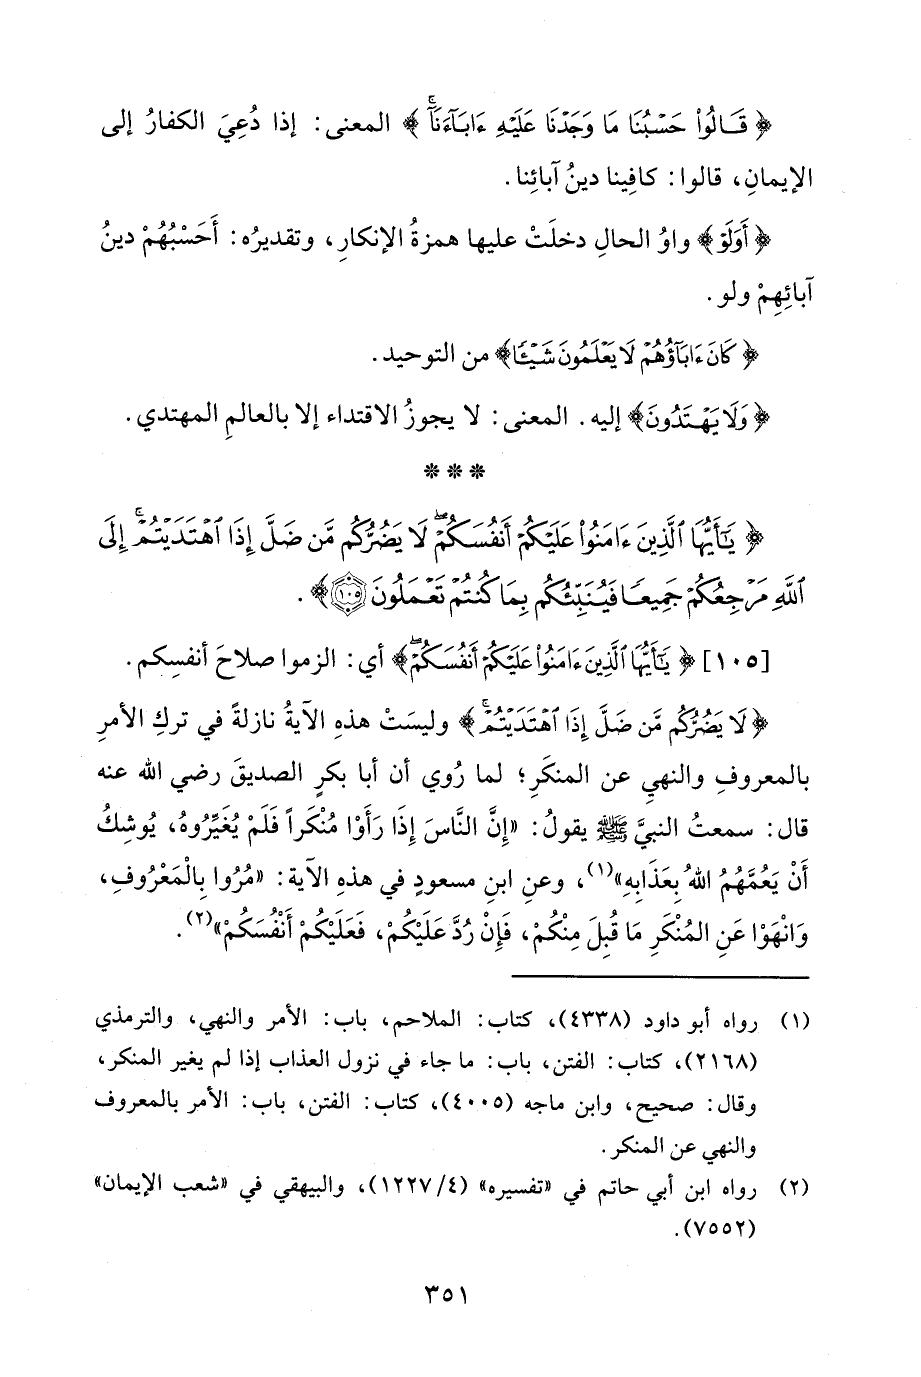 ﴿ قَالُواْ حَسۡبُنَا مَا وَجَدۡنَا عَلَيۡهِ ءَابَآءَنَآۚ ﴾ المعنى: إذا دُعِيَ الكفارُ إلى
الإيمانِ، قالوا: كافِينا دينُ آبائِنا.
﴿ أَوَلَوۡ ﴾ واوُ الحالِ دخلَتْ عليها همزةُ الإنكارِ، وتقديرُه: أَحَسْبُهُمْ دينُ
آبائِهِمْ ولو.
﴿ كَانَ ءَابَآؤُهُمۡ لَا يَعۡلَمُونَ شَيۡـًٔا﴾ من التوحيد.
﴿ وَلَا يَهۡتَدُونَ﴾ إليه. المعنى: لا يجوزُ الاقتداء إلا بالعالمِ المهتدي.
***
﴿ يَـٰٓأَيُّهَا ٱلَّذِينَ ءَامَنُواْ عَلَيۡكُمۡ أَنفُسَكُمۡۖ لَا يَضُرُّكُم مَّن ضَلَّ إِذَا ٱهۡتَدَيۡتُمۡۚ إِلَى
ٱللَّهِ مَرۡجِعُكُمۡ جَمِيعٗا فَيُنَبِّئُكُم بِمَا كُنتُمۡ تَعۡمَلُونَ ١٠٥﴾.
[١٠٥] ﴿ يَـٰٓأَيُّهَا ٱلَّذِينَ ءَامَنُواْ عَلَيۡكُمۡ أَنفُسَكُمۡۖ﴾ أي: الزموا صلاحَ أنفسِكم.
﴿ لَا يَضُرُّكُم مَّن ضَلَّ إِذَا ٱهۡتَدَيۡتُمۡۚ ﴾ وليسَتْ هذهِ الآيةُ نازلةً في تركِ الأمرِ
بالمعروفِ والنهيِ عن المنكَرِ؛ لما رُوي أن أبا بكرٍ الصديقَ رضي الله عنه
قال: سمعتُ النبيَّ ﷺ يقولُ: «إِنَّ النَّاسَ إِذَا رَأَوْا مُنْكَراً فَلَمْ يُغَيِّرُوهُ، يُوشِكُ
أَنْ يَعُمَّهُمُ اللهُ بِعَذَابِهِ»(١)، وعنِ ابنِ مسعودٍ في هذهِ الآية: «مُرُوا بِالْمَعْرُوفِ،
وَانْهَوْا عَنِ المُنْكَرِ مَا قُبِلَ مِنْكُمْ، فَإِنْ رُدَّ عَلَيْكُمْ، فَعَلَيْكُمْ أَنْفُسَكُمْ»(٢).
(١) رواه أبو داود (٤٣٣٨)، كتاب: الملاحم، باب: الأمر والنهي، والترمذي
(٢١٦٨)، كتاب: الفتن، باب: ما جاء في نزول العذاب إذا لم يغير المنكر،
وقال: صحيح، وابن ماجه (٤٠٠٥)، كتاب: الفتن، باب: الأمر بالمعروف
والنهي عن المنكر.
(٢) رواه ابن أبي حاتم في «تفسيره» (٤/ ١٢٢٧)، والبيهقي في «شعب الإيمان»
(٧٥٥٢).
٣٥١